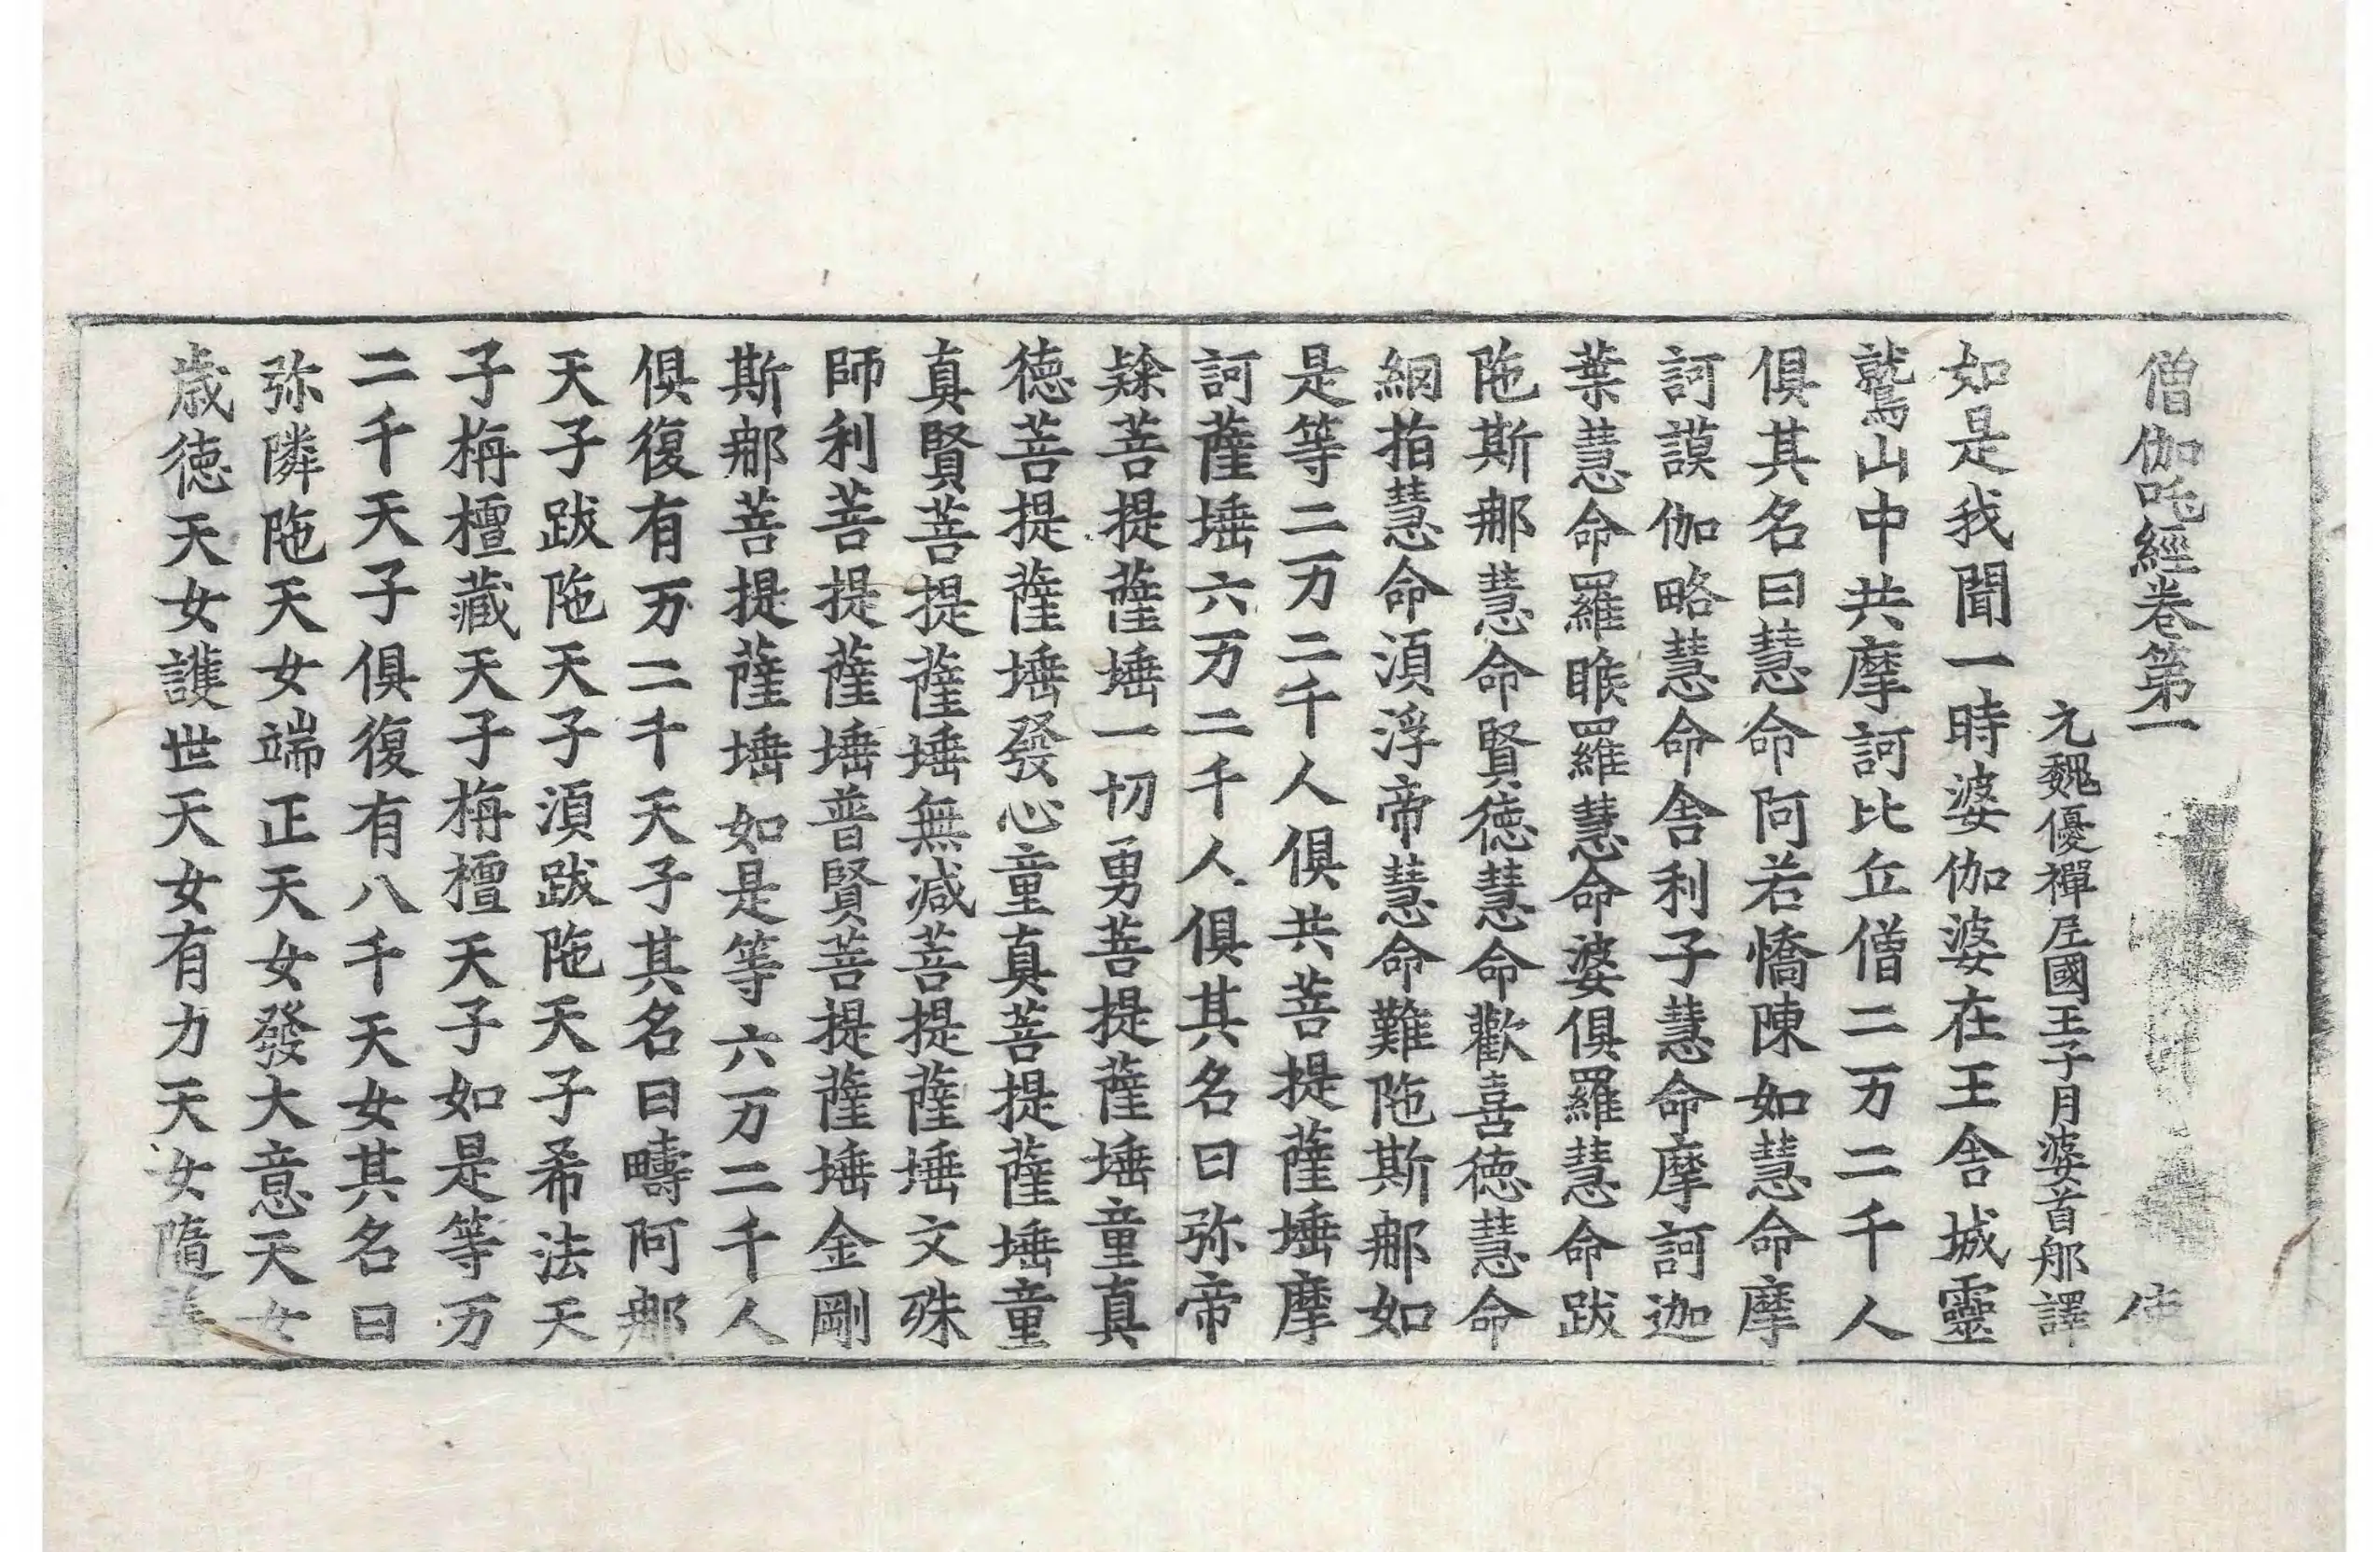 僧伽吒經卷第一　使
元魏優禪尼國王子月婆首那譯
如是我聞一時婆伽婆在王舍城靈
鷲山中共摩訶比丘僧二万二千人
俱其名曰慧命阿若憍陳如慧命摩
訶謨伽略慧命舍利子慧命摩訶迦
葉慧命羅睺羅慧命婆俱羅慧命跋
陁斯那慧命賢德慧命歡喜德慧命
網指慧命湏浮帝慧命難陁斯那如
是等二万二千人俱共菩提薩埵摩
訶薩埵六万二千人俱其名曰弥帝
隸菩提薩埵一切勇菩提薩埵童真
德菩提薩埵發心童真菩提薩埵童
真賢菩提薩埵無減菩提薩埵文殊
師利菩提薩埵普賢菩提薩埵金剛
斯那菩提薩埵如是等六万二千人
俱復有万二千天子其名曰疇阿那
天子跋陁天子湏跋陁天子希法天
子栴檀藏天子栴檀天子如是等万
二千天子俱復有八千天女其名曰
弥隣陁天女端正天女發大意天女
歲德天女護世天女有力天女隨善